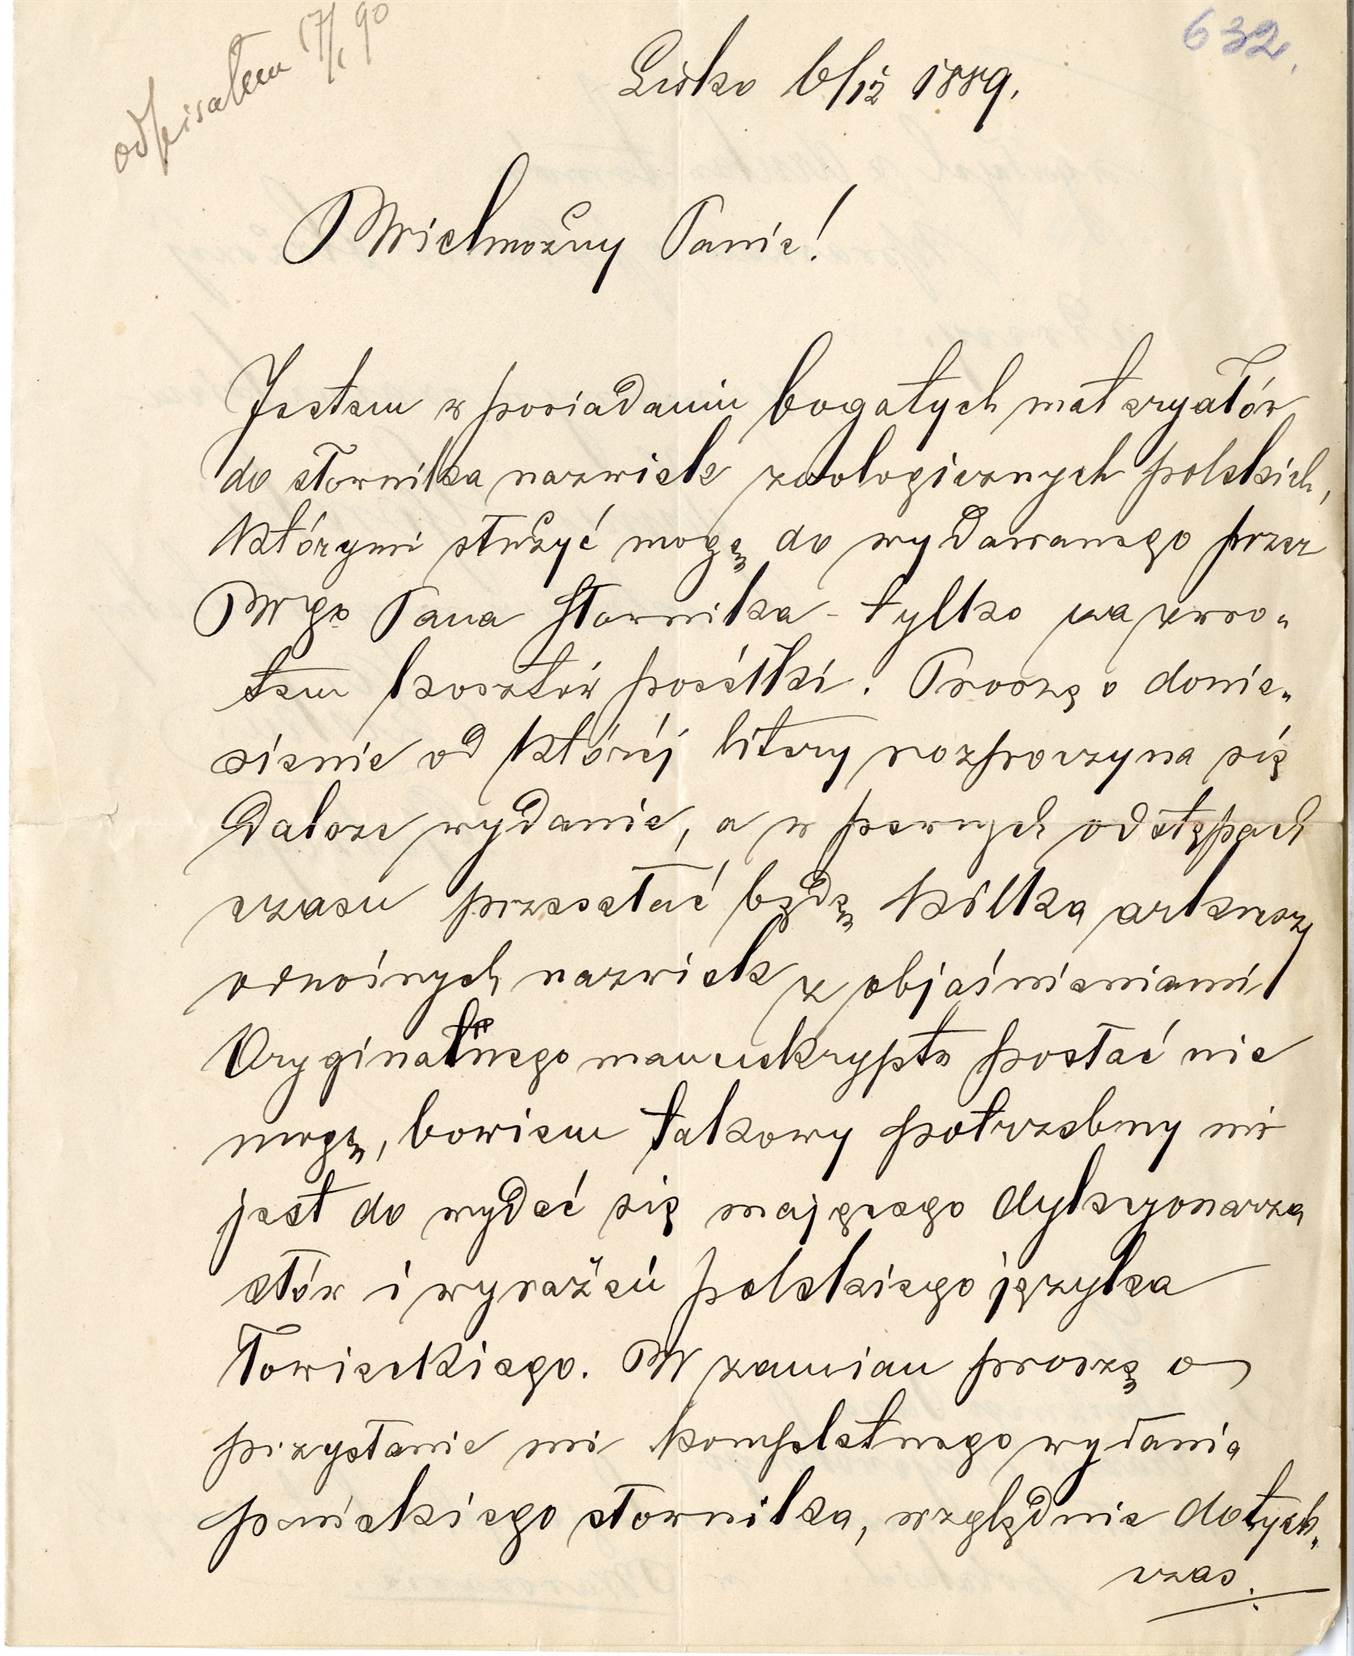 odpisałem 17/1 90
632.
Lisko 6/12 1889.
Wielmożny Panie!
Jestem w posiadaniu bogatych materyałów
do słownika nazwisk zoologicznych polskich,
którymi służyć mogę do wydawanego przez
Wgo Pana słownika - tylko za zwro-
tem kosztów posyłki. Proszę o donie-
sienie od której litery rozpoczyna się
dalsze wydanie, a w pewnych odstępach
czasu przesełać będę kilka arkuszy
odnośnych nazwisk z objaśnieniami
Oryginalnego manuskryptu posłać nie
mogę, bowiem takowy potrzebny mi
jest do wydać się mającego dykcyonarza
słów i wyrażeń polskiego języka
łowieckiego. W zamian proszę o
przysłanie mi kompletnego wydania
pańskiego słownika, względnie dotych-
czas.